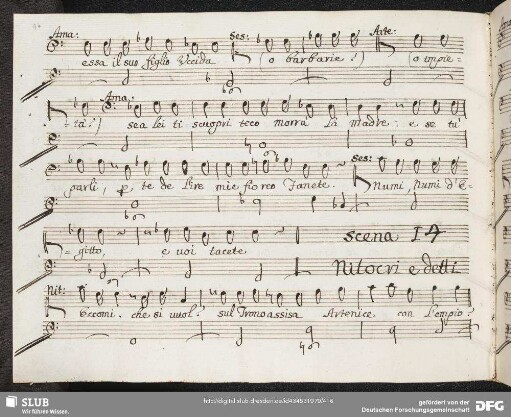 Ama: Ses: Arte:
essa il suo figlio Uccida (o barbarie!) (o impie-
Ama:
tà!) sea lei ti scuopri teco morrà la Madre. e se tù
Ses:
parli, p te de l'ire mie fia reo Janete. Numi, Numi d'E-
scena 14
gitto, e uoi tacete
Nitocri e detti
Nit:
Eccomi. che si uuol? sul Trono assisa Artenice con l'empio?
SLUB
Wir führen Wissen.
http://digital.slub-dresden.de/id434931979/4
gefördert von der
Deutschen Forschungsgemeinschaft
DFG